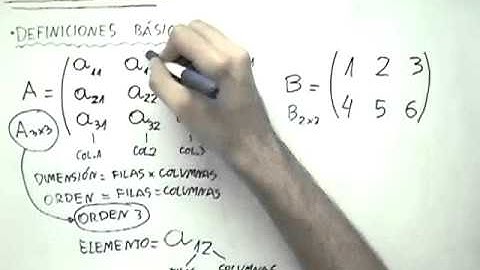 • DEFINICIONES BÁSIC
A = ( a11 a1 1
a21 a22
a31 a32 )
A3x3
COL.1 COL.2 COL.3
DIMENSIÓN = FILAS x COLUMNAS
ORDEN = FILAS = COLUMNAS
ORDEN 3
ELEMENTO = a12
COLUMNAS
B = ( 1 2 3
4 5 6 )